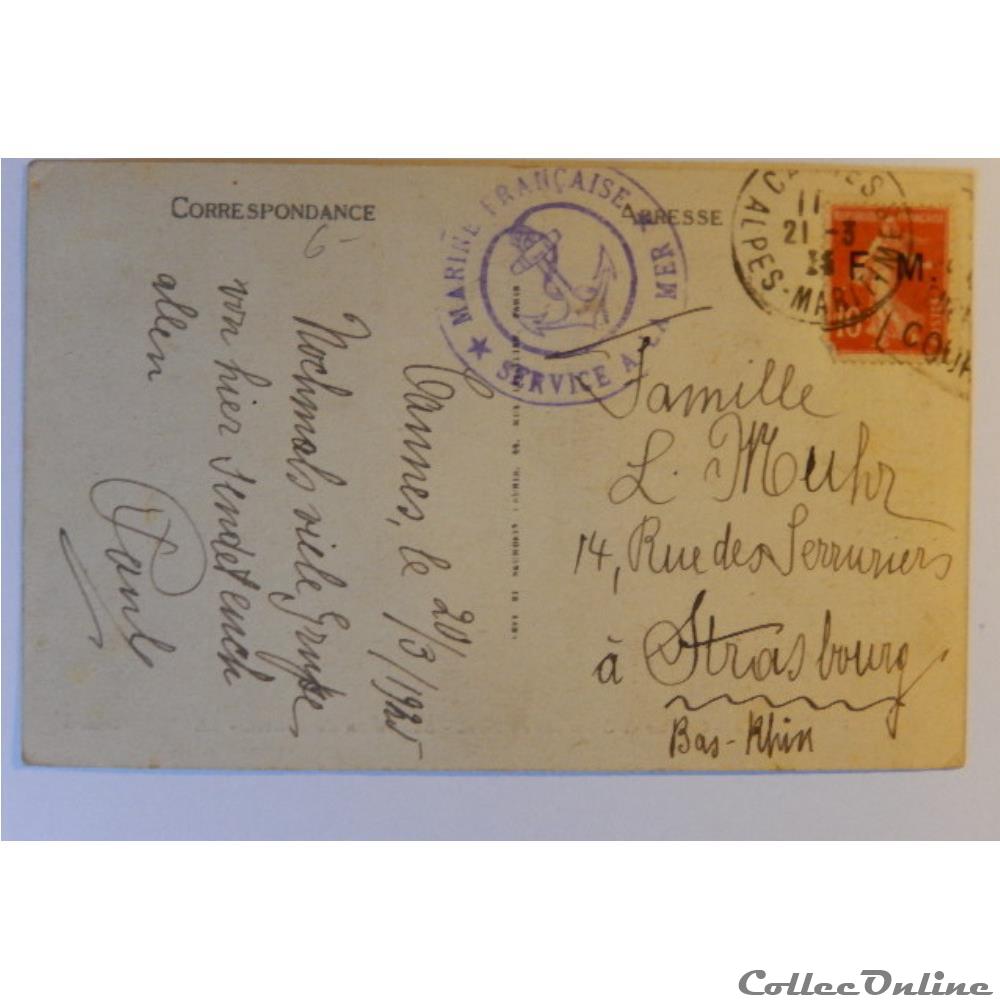 CORRESPONDANCE
ADRESSE
★ MARINE FRANÇAISE ★
SERVICE A LA MER
CANNES
11
21 -3
ALPES-MARITIMES
F. M.
10
Cannes, le 20/3/1925
Nochmals viele Grüße
von hier sendet euch
allen
Paul
Famille
L. Muhr
14, Rue des Serruriers
à Strasbourg
Bas-Rhin
CollecOnline